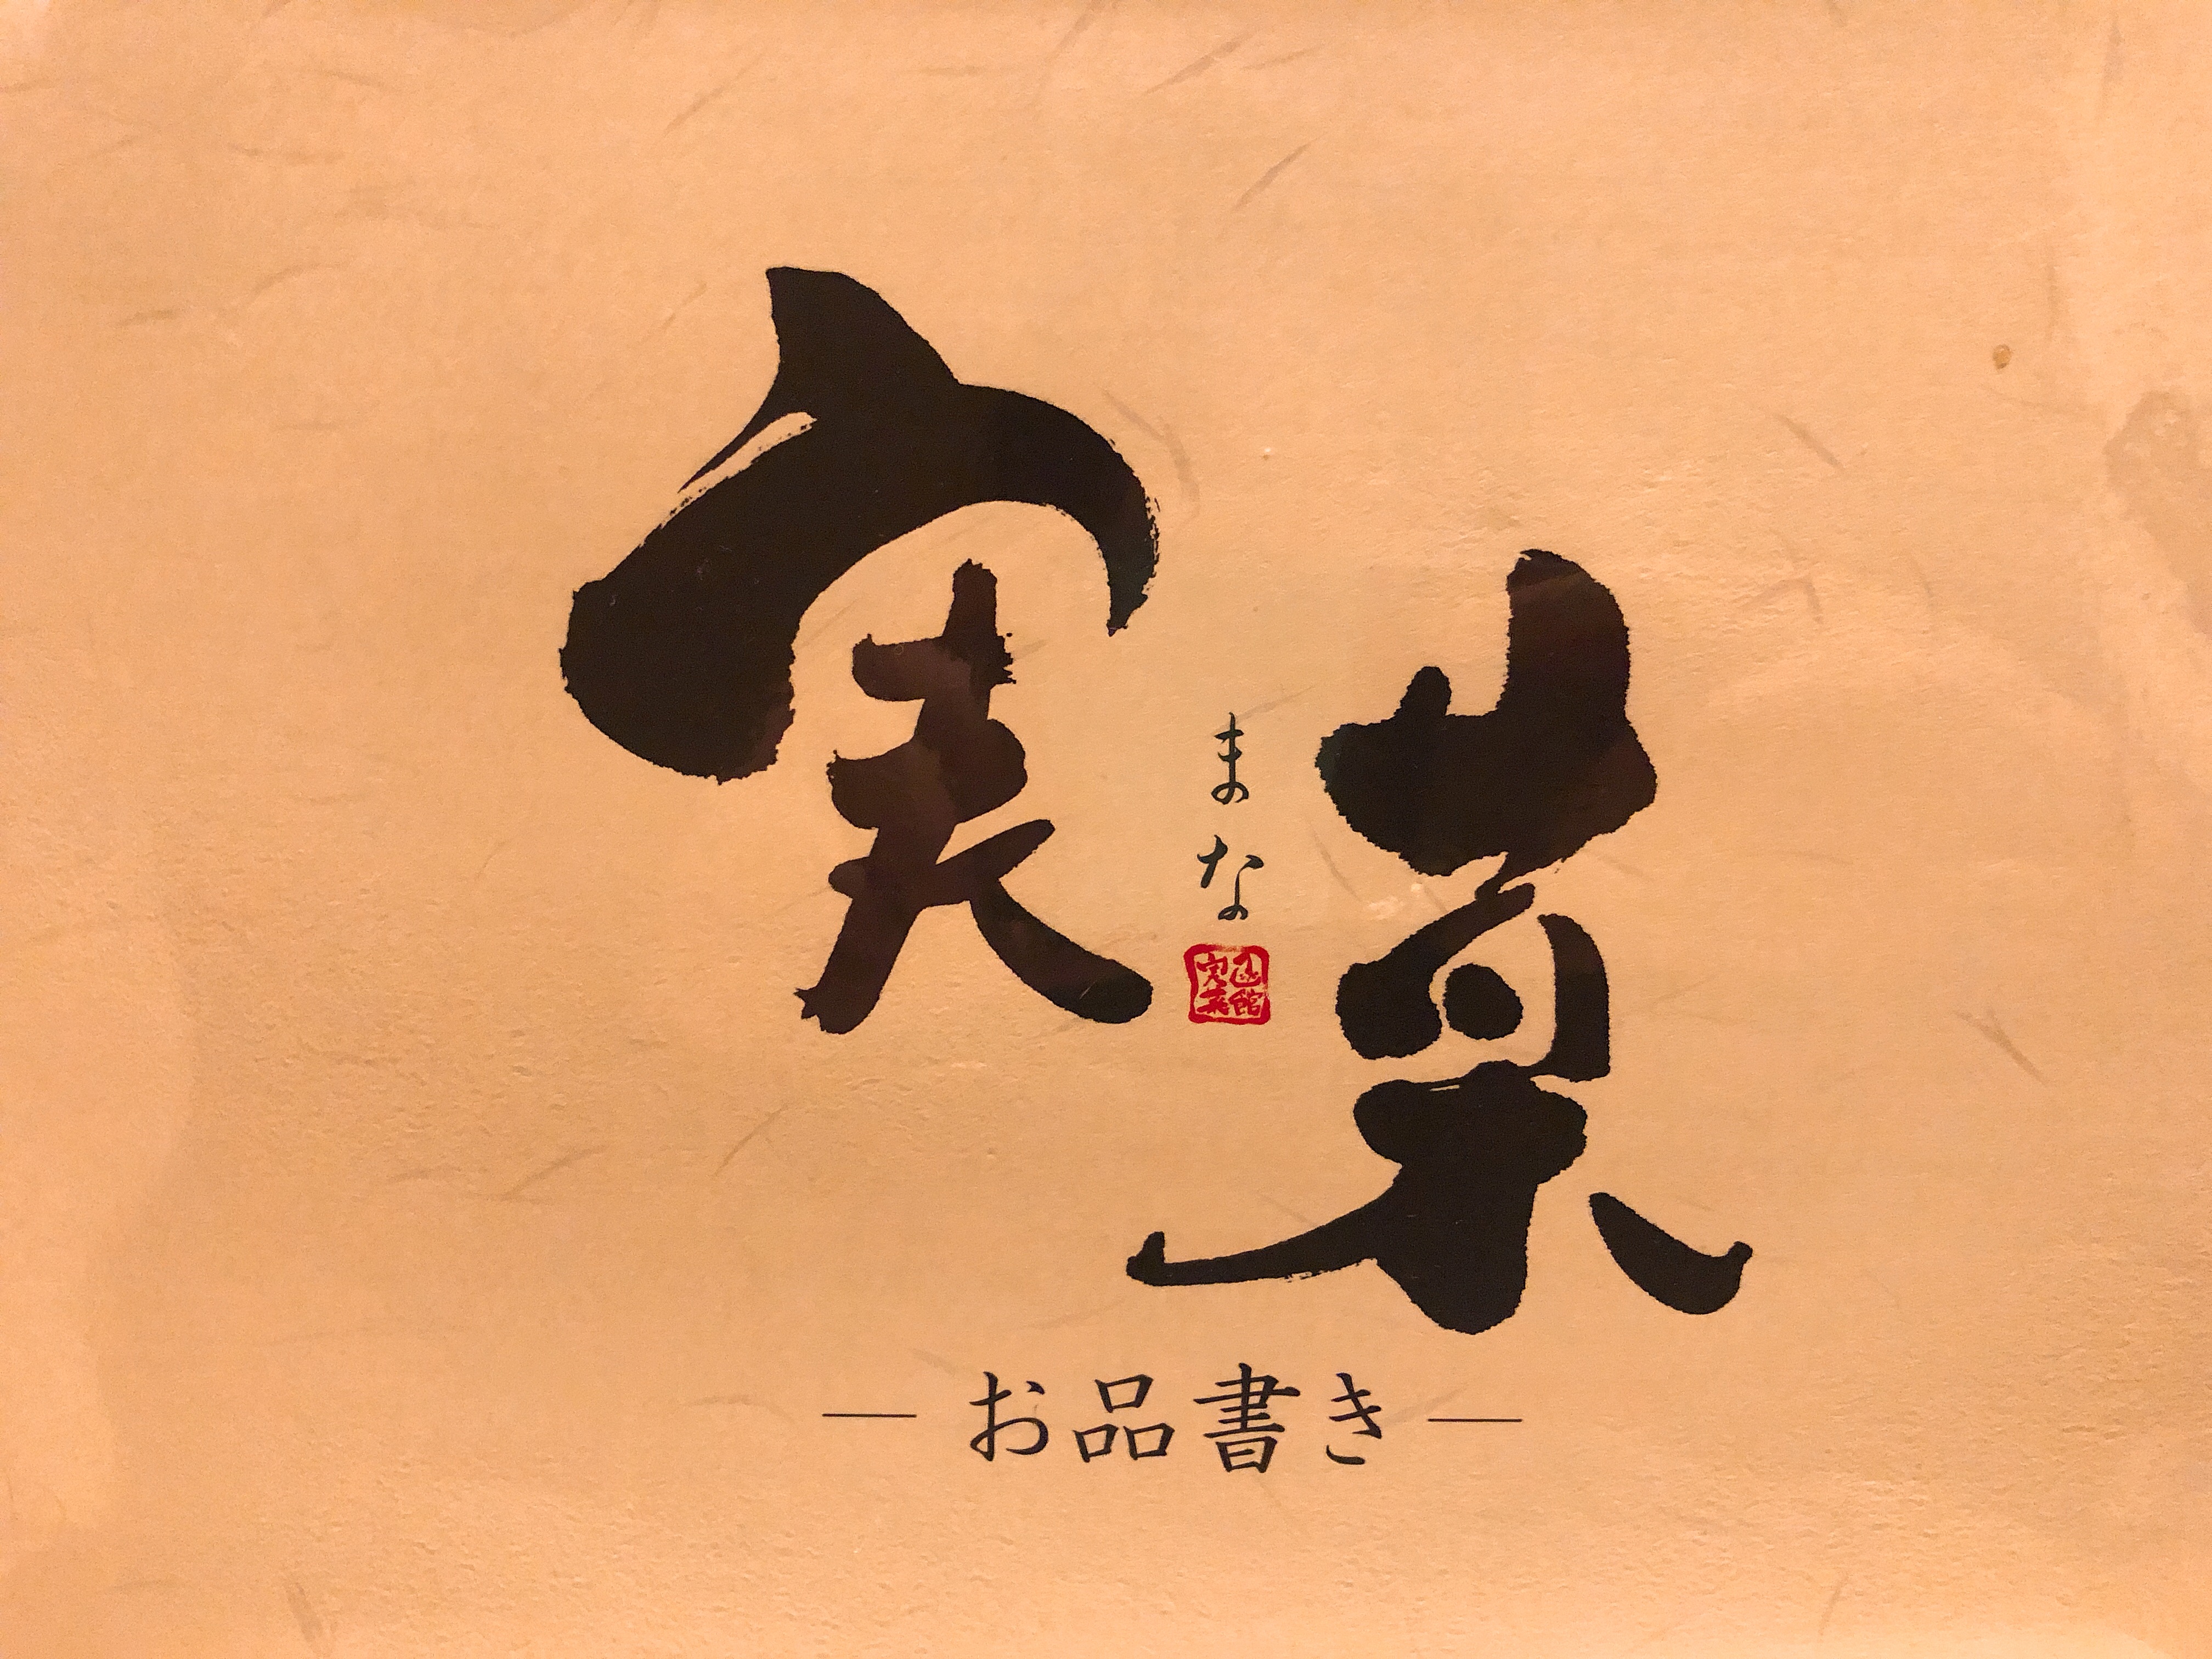 実菜
まな
函館
実菜
— お品書き —